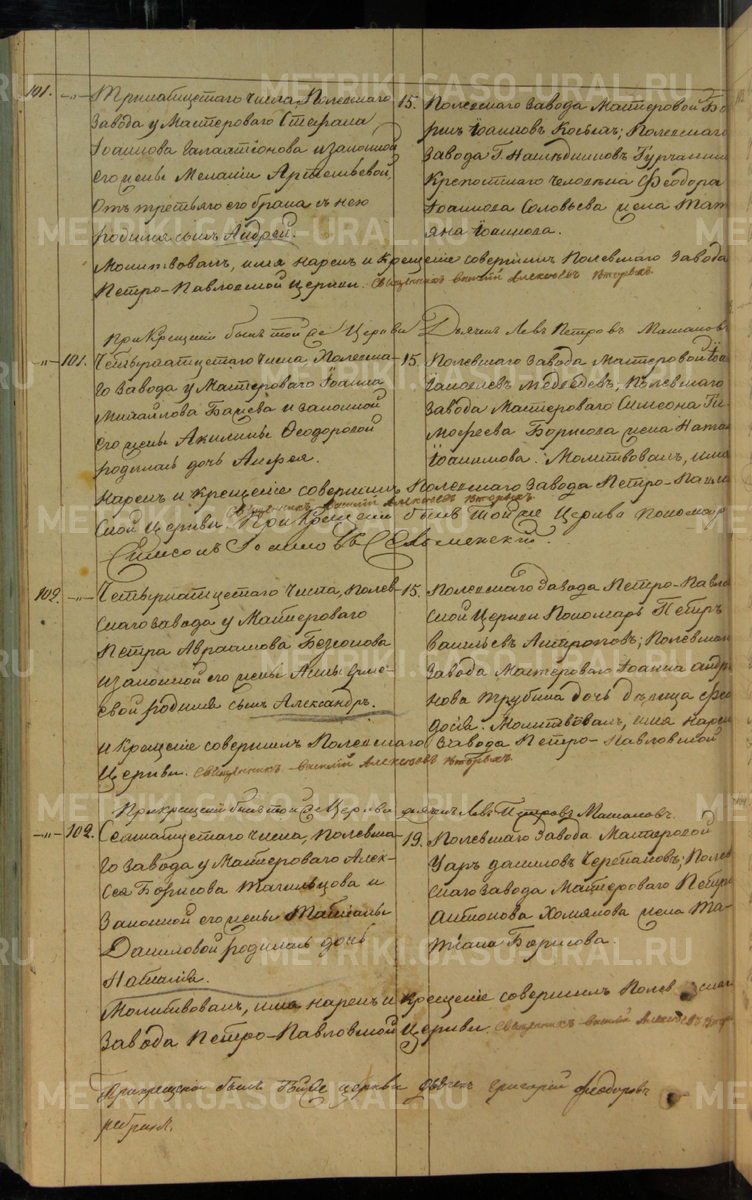 101. -„- Тринатцетаго числа, Полевскаго
Завода у Мастероваго Стефана
Іоаннова Галактіонова и законной
его жены Меланіи Артемьевой,
Отъ третьяго его брака съ нею
родился сынъ Андрей.
15. Полевскаго Завода Мастеровой
Іоанновъ Косыхъ; Полевскаго
Завода Г. Наследниковъ Турчанин
Крепостнаго человека Феодора
Іоаннова Соловьева жена Тат
яна Іоаннова.
Молитвовалъ, имя нарекъ и Крещеніе совершилъ Полевскаго Завода
Петро-Павловской Церкви. Священникъ Василій Алексѣевъ Вторыхъ
При Крещеніи былъ той же Церкви Дьячекъ Левъ Петровъ
-„- 101. Четырнатцетаго числа Полевска-
го Завода у Мастероваго Іоанна
Михайлова Баяева и законной
его жены Акилины Феодоровой
родилась дочь Анфея.
15. Полевскаго Завода Мастеровой
Медведевъ, Полевскаго
Завода Мастероваго Симеона Ти
мофеева Борисова жена Ната
Іоакимова. Молитвовалъ, имя
нарекъ и Крещеніе совершилъ Полевскаго Завода Петро-Павлов
Священникъ Василій Алексѣевъ Вторыхъ
ской Церкви При Крещеніи былъ той же Церкви Пономарь
102. -„- Четырнатцетаго Числа, Полев-
скаго Завода у Мастероваго
Петра Авраамова Безсонова
и законной его жены Анны Ермо-
евой родился сынъ Александръ.
15. Полевскаго Завода Петро-Павло
ской Церкви Пономарь Петръ
Васильевъ Антроповъ; Полевскаго
Завода Мастероваго Іоанна Андр
нова Трубина дочь девица Фео
досія. Молитвовалъ, имя нарек
и Крещеніе совершилъ Полевскаго Завода Петро-Павловской
Церкви. Священникъ Василій Алексѣевъ Вторыхъ.
При крещеніи былъ той же Церкви дьячекъ Левъ Петровъ
-„- 102. Семнатцетаго числа, Полевска-
го Завода у Мастероваго Алек-
сея Борисова Тагильцова и
Законной его жены Татіаны
Даниловой родилась дочь
Наталія.
19. Полевскаго Завода Мастеровой
Уаръ Даниловъ Черепановъ; Полев
скаго Завода Мастероваго Петра
Антонова Хомякова жена Та-
тіана Борисова.
Молитвовалъ, имя нарекъ и Крещеніе совершилъ Полевскаго
Завода Петро-Павловской Церкви. Священникъ Василій Алексѣевъ Втор
При крещеніи былъ той же церкви дьячекъ Григорій Феодоровъ
METRIKI.GASO-URAL.RU